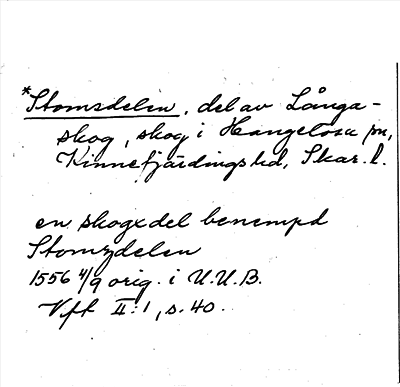 *Stomsdelen, del av Långa-
skog, skog i Hangelösa sn,
Kinnefjärdings hd, Skar. l.
en skogxdel benempd
Stomzdelen
1556 4/9 orig. i U.U.B.
Vft II:1, s. 40.